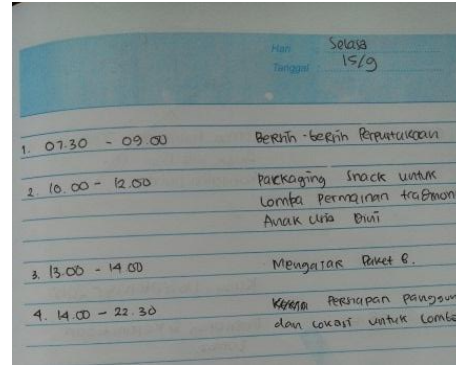 Hari Selasa
Tanggal 15/9
1. 07.30 - 09.00 Bersih-bersih Perpustakaan
2. 10.00 - 12.00 Packaging Snack untuk
Lomba Permainan tradision
Anak Usia Dini
3. 13.00 - 14.00 Mengajar Paket B.
4. 14.00 - 22.30 Persiapan panggun
dan lokasi untuk Lomba